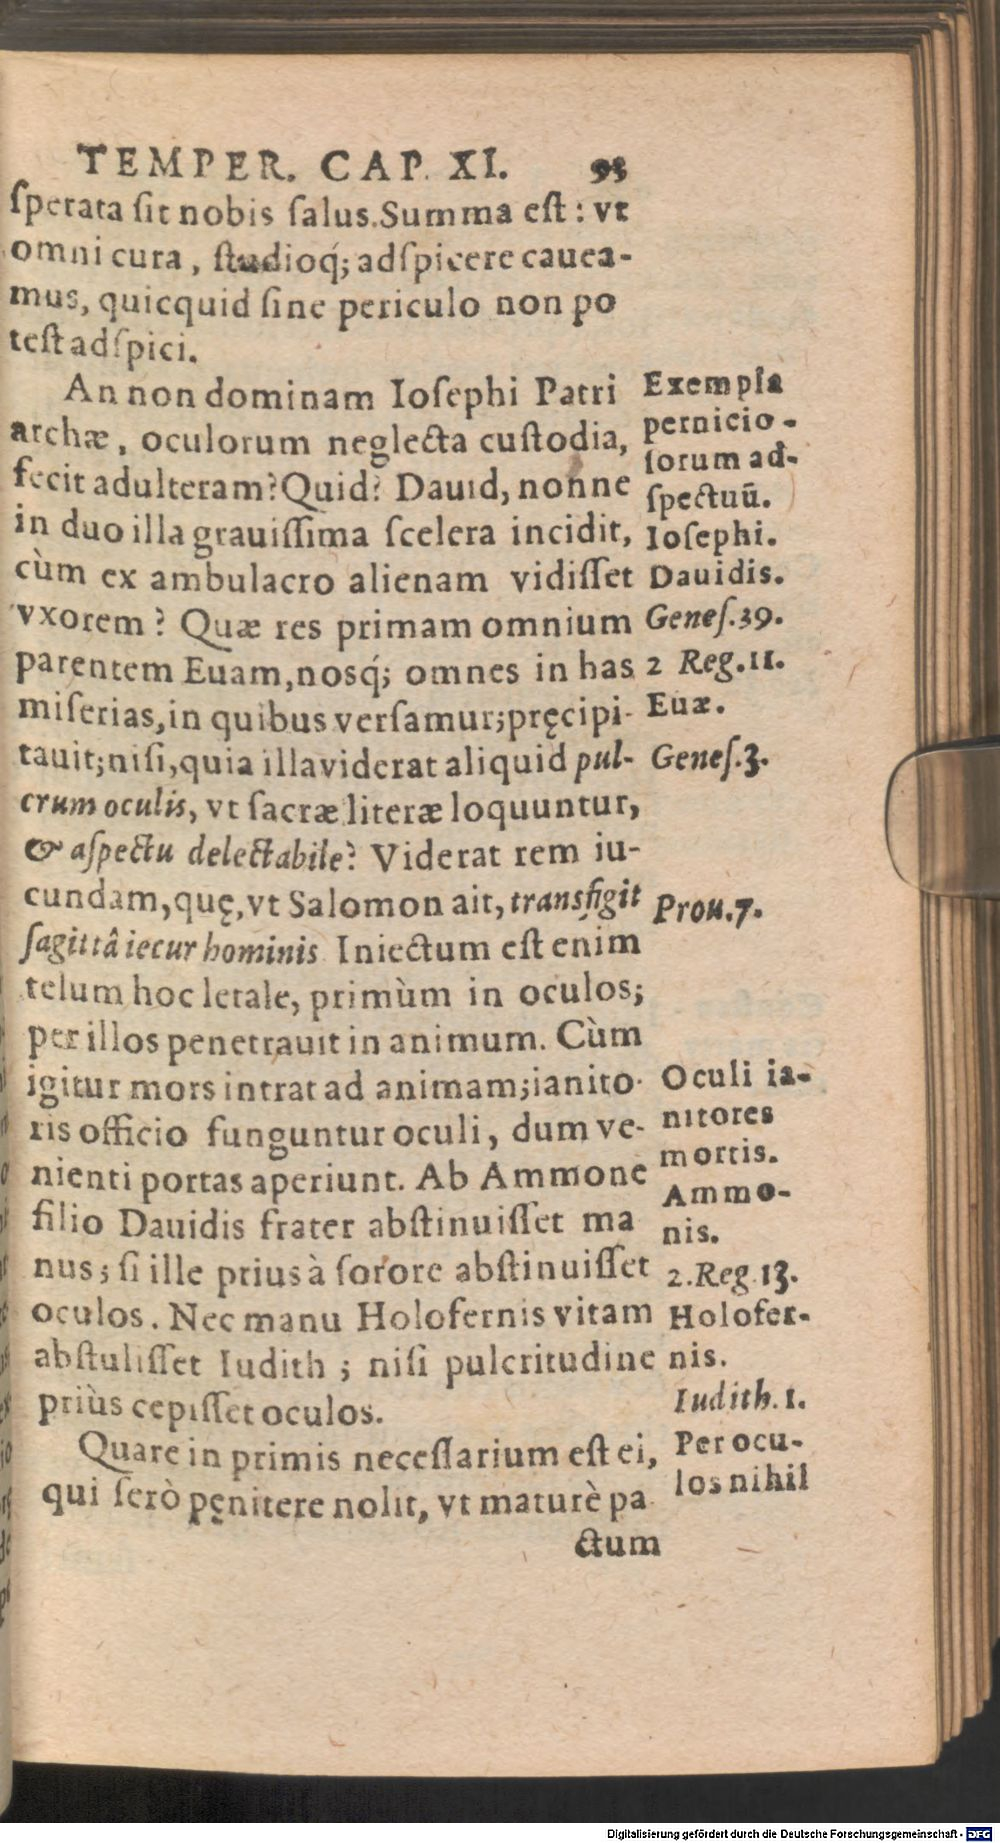 TEMPER. CAP. XI. 95
ſperata ſit nobis ſalus. Summa eſt: vt
omni cura, ſtudioq́; adſpicere cauea-
mus, quicquid ſine periculo non po
teſt adſpici.
An non dominam Ioſephi Patri
archæ, oculorum neglecta cuſtodia,
fecit adulteram? Quid? Dauid, nonne
in duo illa grauiſſima ſcelera incidit,
cùm ex ambulacro alienam vidiſſet
vxorem? Quæ res primam omnium
parentem Euam, nosq́; omnes in has
miſerias, in quibus verſamur; pręcipi-
tauit; niſi, quia illa viderat aliquid pul-
crum oculis, vt ſacræ literæ loquuntur,
& aſpectu delectabile? Viderat rem iu-
cundam, quę, vt Salomon ait, transfigit
ſagittâ iecur hominis Iniectum eſt enim
telum hoc letale, primùm in oculos;
per illos penetrauit in animum. Cùm
igitur mors intrat ad animam; ianito-
ris officio funguntur oculi, dum ve-
nienti portas aperiunt. Ab Ammone
filio Dauidis frater abſtinuiſſet ma
nus; ſi ille prius à ſorore abſtinuiſſet
oculos. Nec manu Holofernis vitam
abſtuliſſet Iudith; niſi pulcritudine
priùs cepiſſet oculos.
Quare in primis neceſſarium eſt ei,
qui ſerò pęnitere nolit, vt maturè pa
ctum
Exempla
pernicio-
ſorum ad-
ſpectuū.
Ioſephi.
Dauidis.
Geneſ. 39.
2 Reg. 11.
Euæ.
Geneſ. 3.
Prou. 7.
Oculi ia-
nitores
mortis.
Ammo-
nis.
2. Reg. 13.
Holofer-
nis.
Iudith. 1.
Per ocu-
los nihil
Digitalisierung gefördert durch die Deutsche Forschungsgemeinschaft - DFG